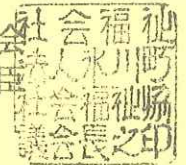 社会福祉
法人氷川町
社会福祉協
議会長之印